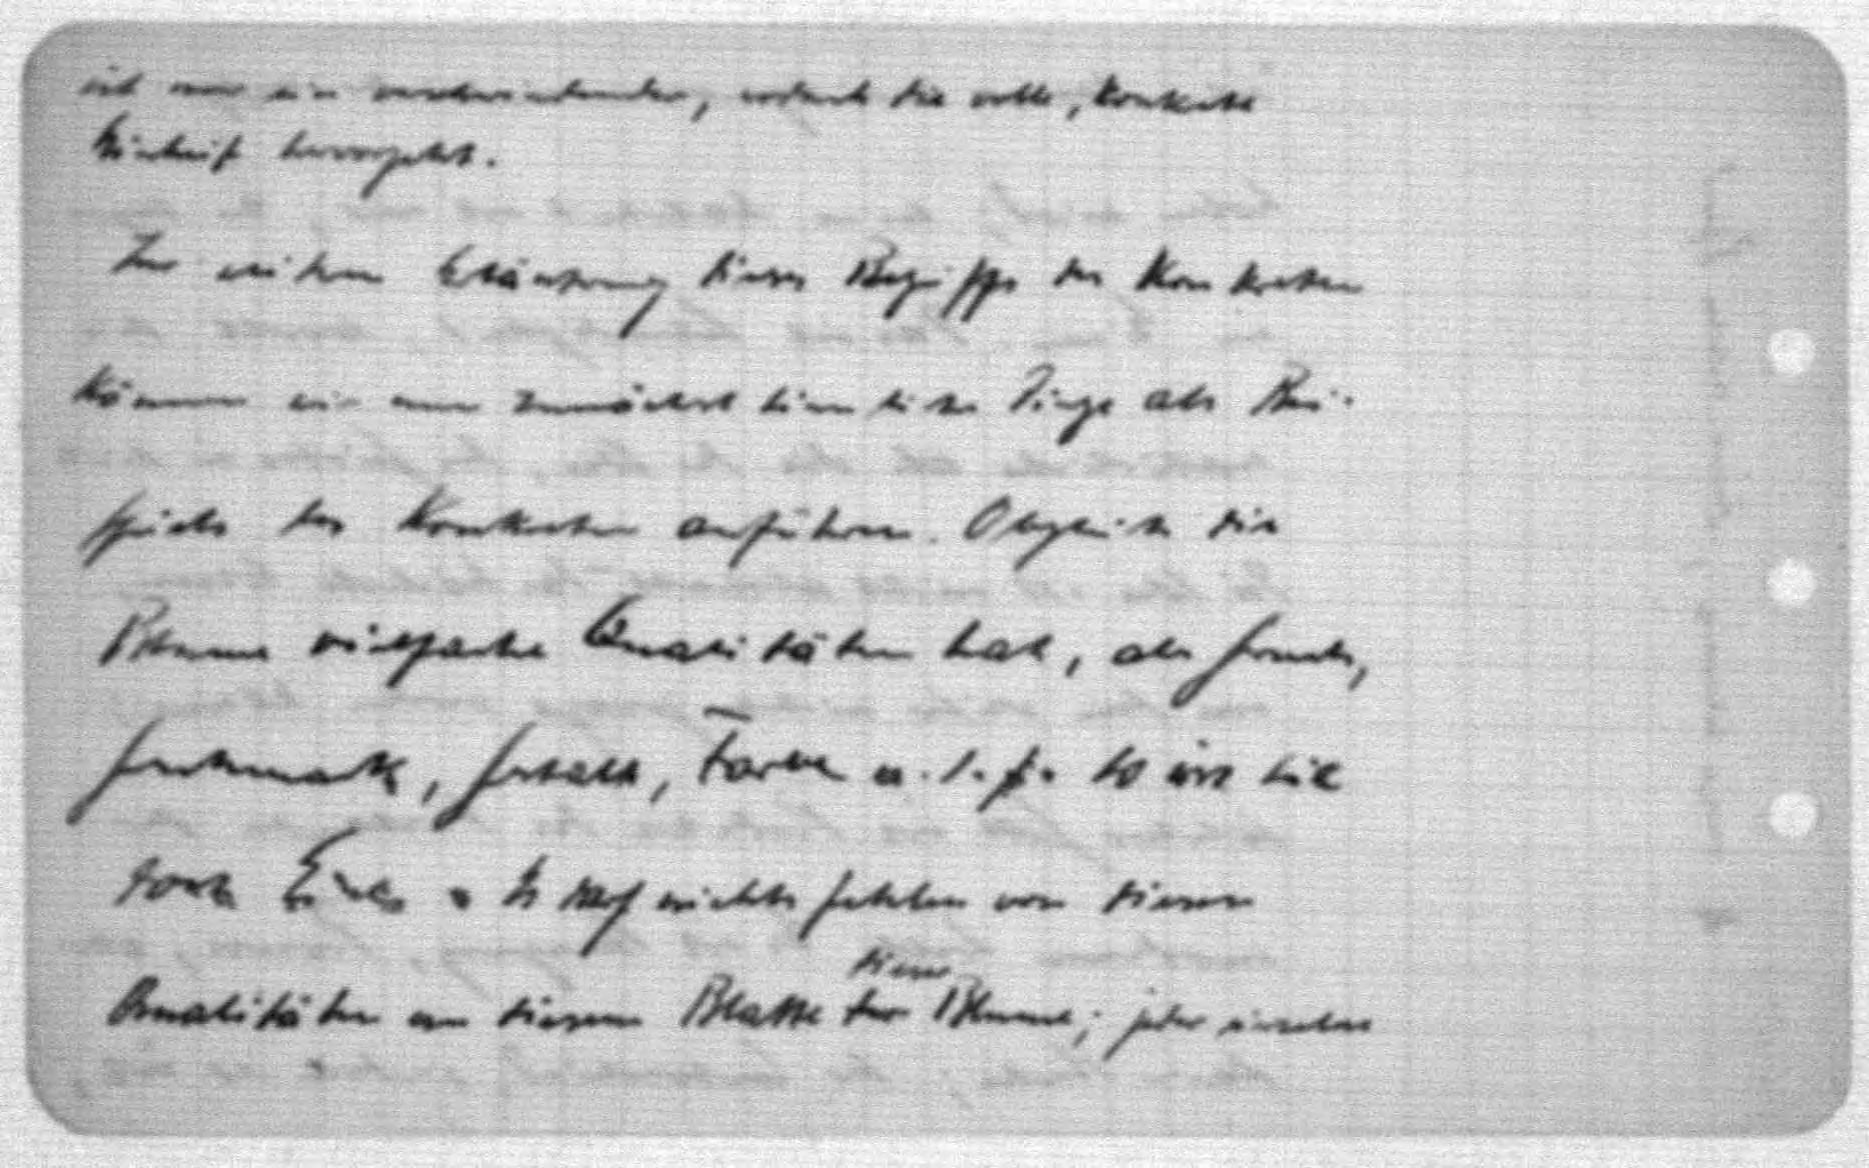 ist nur ein verschwindender, wodurch die volle, konkrete
Einheit hervorgeht.
Zur näheren Erläuterung dieses Begriffs des Konkreten
können wir nun zunächst sinnliche Dinge als Bei-
spiele des Konkreten anführen. Obgleich die
Blume vielfache Qualitäten hat, als Geruch,
Geschmack, Gestalt, Farbe u.s.f. so ist sie
doch Eine. Es darf nichts fehlen von diesen
Qualitäten an diesem Blatte dieser Blume; jeder einzelne